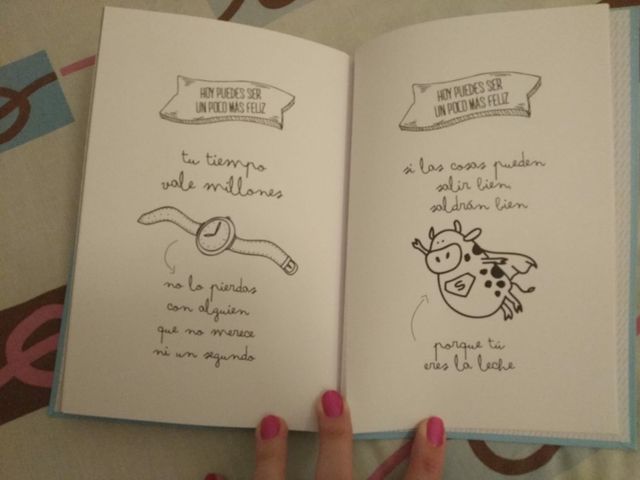 HOY PUEDES SER
UN POCO MÁS FELIZ
tu tiempo
vale millones
no lo pierdas
con alguien
que no merece
ni un segundo
HOY PUEDES SER
UN POCO MÁS FELIZ
si las cosas pueden
salir bien,
saldrán bien
S
porque tú
eres la leche